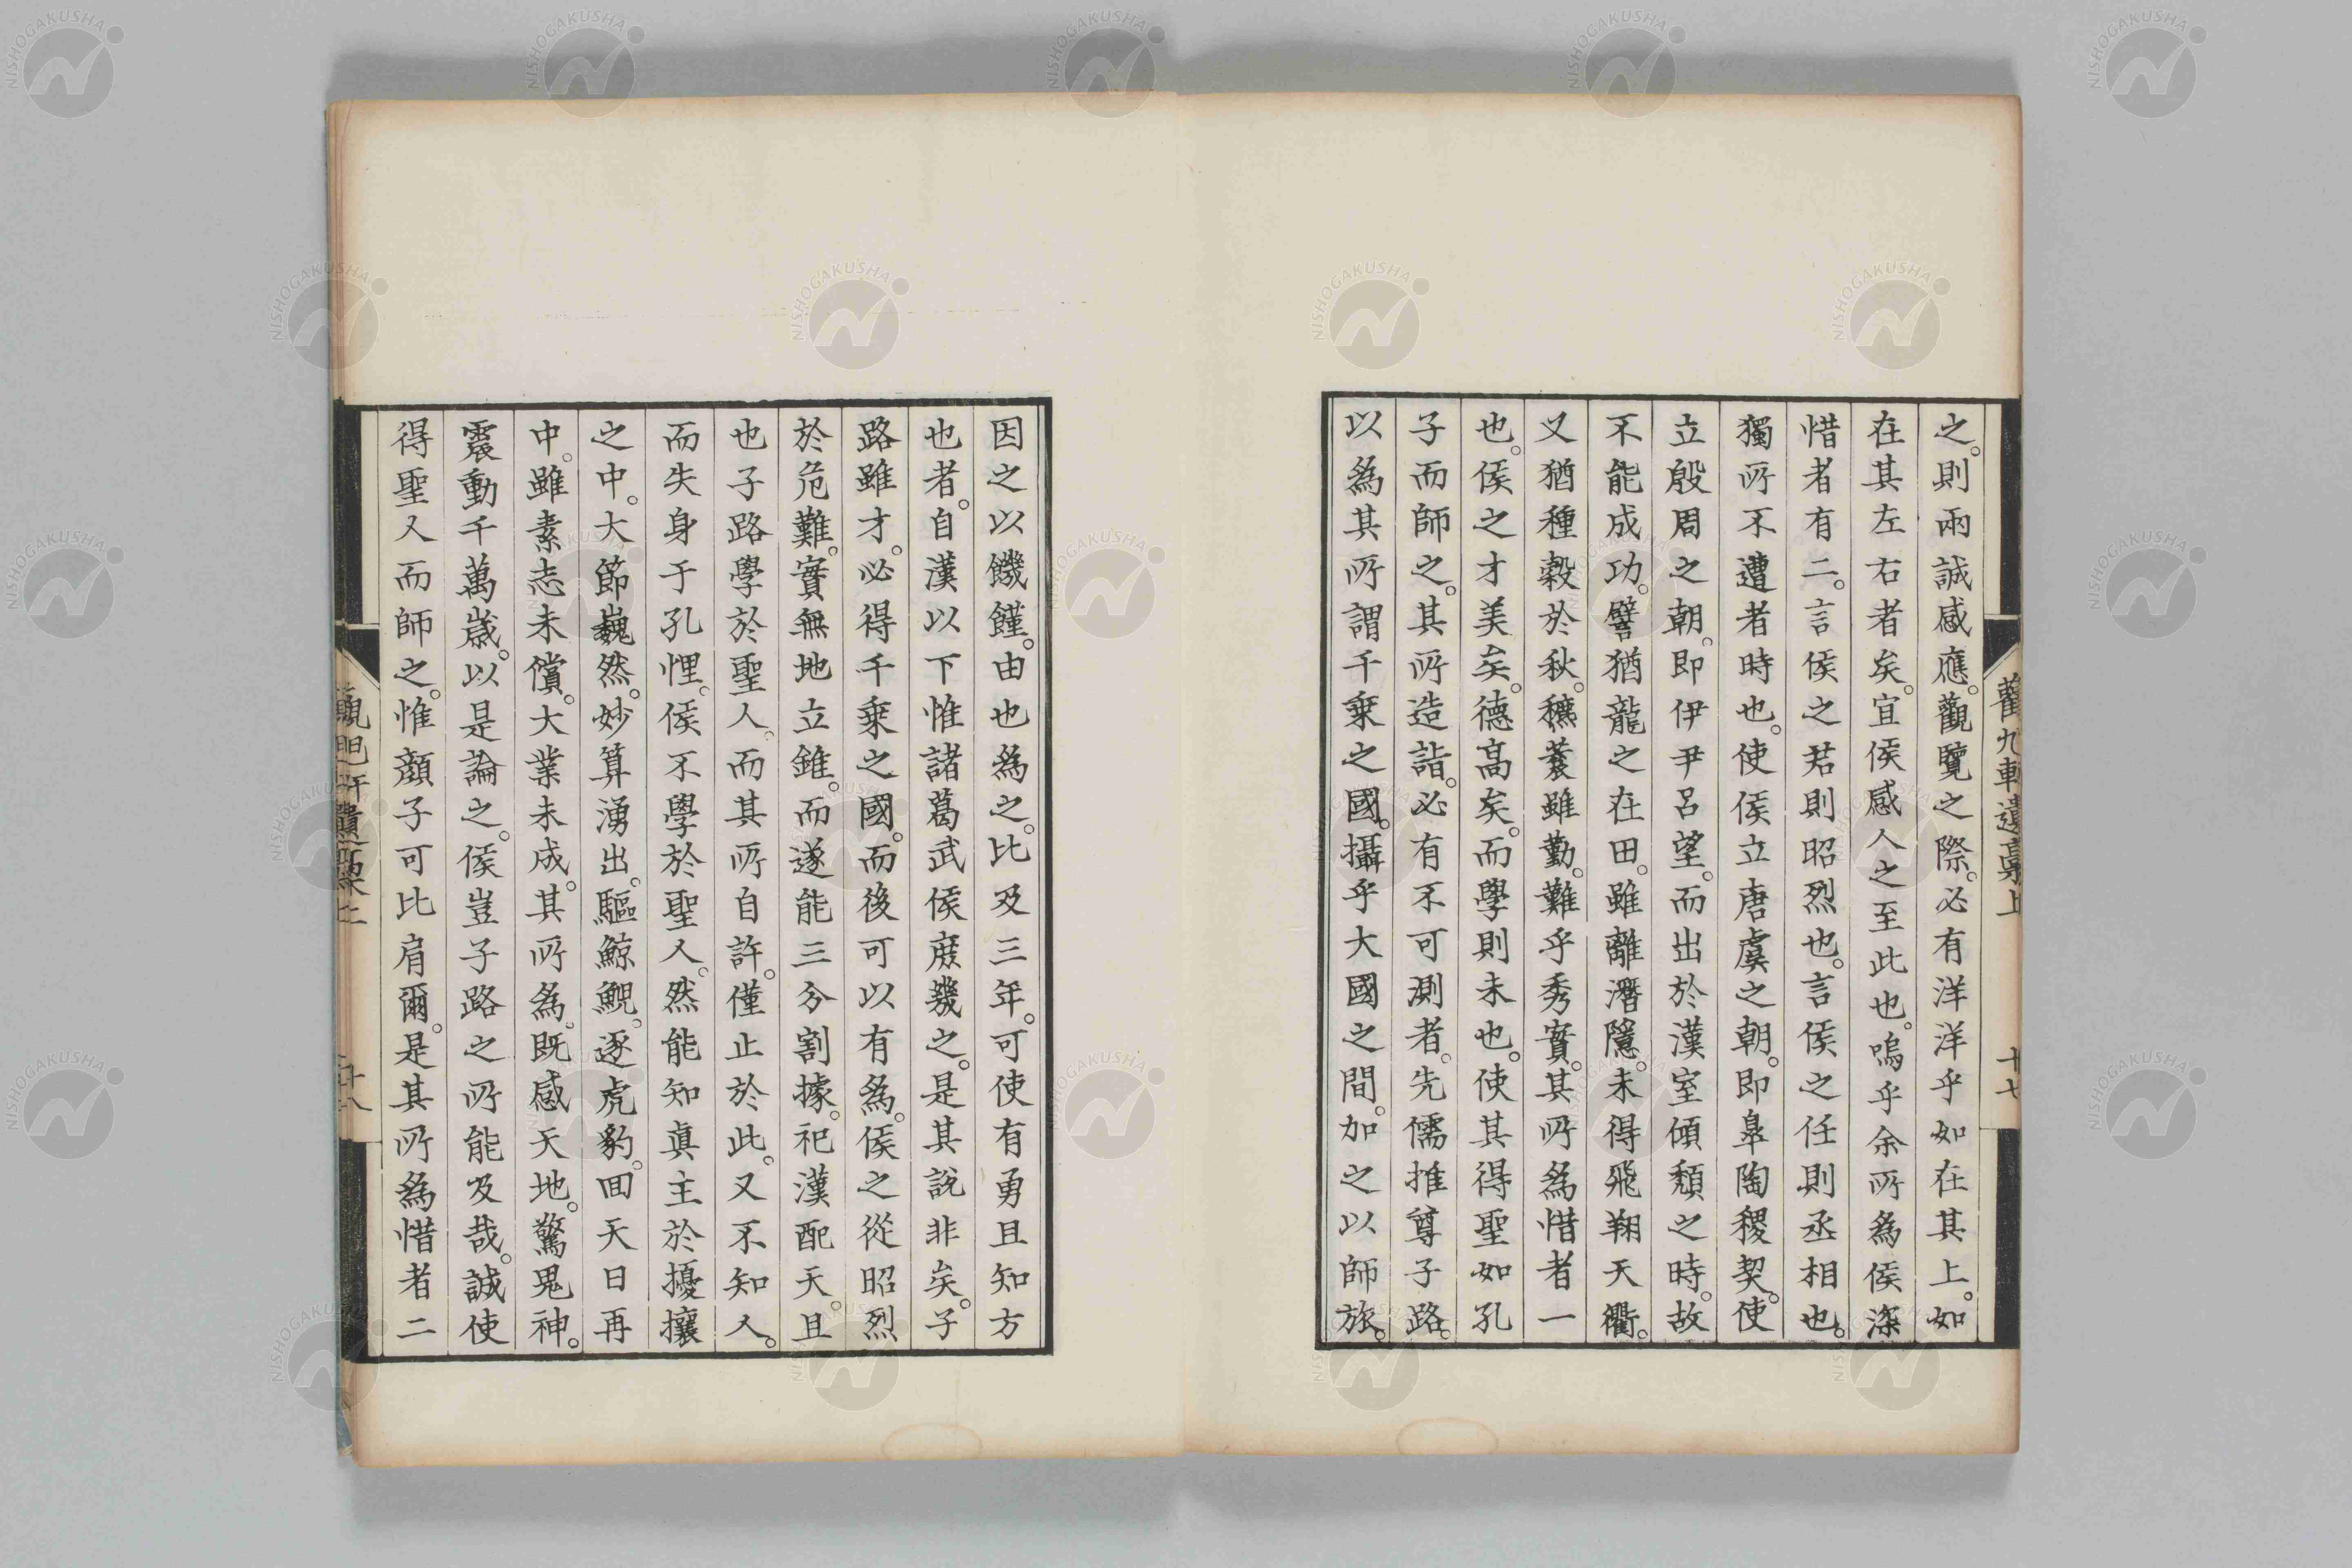 之。則兩誠感應。觀覽之際。必有洋洋乎如在其上。如
在其左右者矣。宜侯感人之至此也。嗚乎余所爲侯深
惜者有二。言侯之君則昭烈也。言侯之任則丞相也。
獨所不遭者時也。使侯立唐虞之朝。即皋陶稷契。使
立殷周之朝。即伊尹呂望。而出於漢室傾頹之時。故
不能成功。譬猶龍之在田。雖離潛隱。未得飛翔天衢。
又猶種穀於秋。穮蓘雖勤。難乎秀實。其所爲惜者一
也。侯之才美矣。德高矣。而學則未也。使其得聖如孔
子而師之。其所造詣。必有不可測者。先儒推尊子路。
以爲其所謂千乘之國。攝乎大國之間。加之以師旅。
因之以饑饉。由也爲之。比及三年。可使有勇且知方
也者。自漢以下惟諸葛武侯庶幾之。是其說非矣。子
路雖才。必得千乘之國。而後可以有爲。侯之從昭烈
於危難。實無地立錐。而遂能三分割據。祀漢配天。且
也子路學於聖人。而其所自許。僅止於此。又不知人。
而失身于孔悝。侯不學於聖人。然能知眞主於擾攘
之中。大節巍然。妙算湧出。驅鯨鯢。逐虎豹。回天日再
中。雖素志未償。大業未成。其所爲。既感天地。驚鬼神。
震動千萬歲。以是論之。侯豈子路之所能及哉。誠使
得聖人而師之。惟顏子可比肩爾。是其所爲惜者二
觀九軒遺稾上
十七
十八